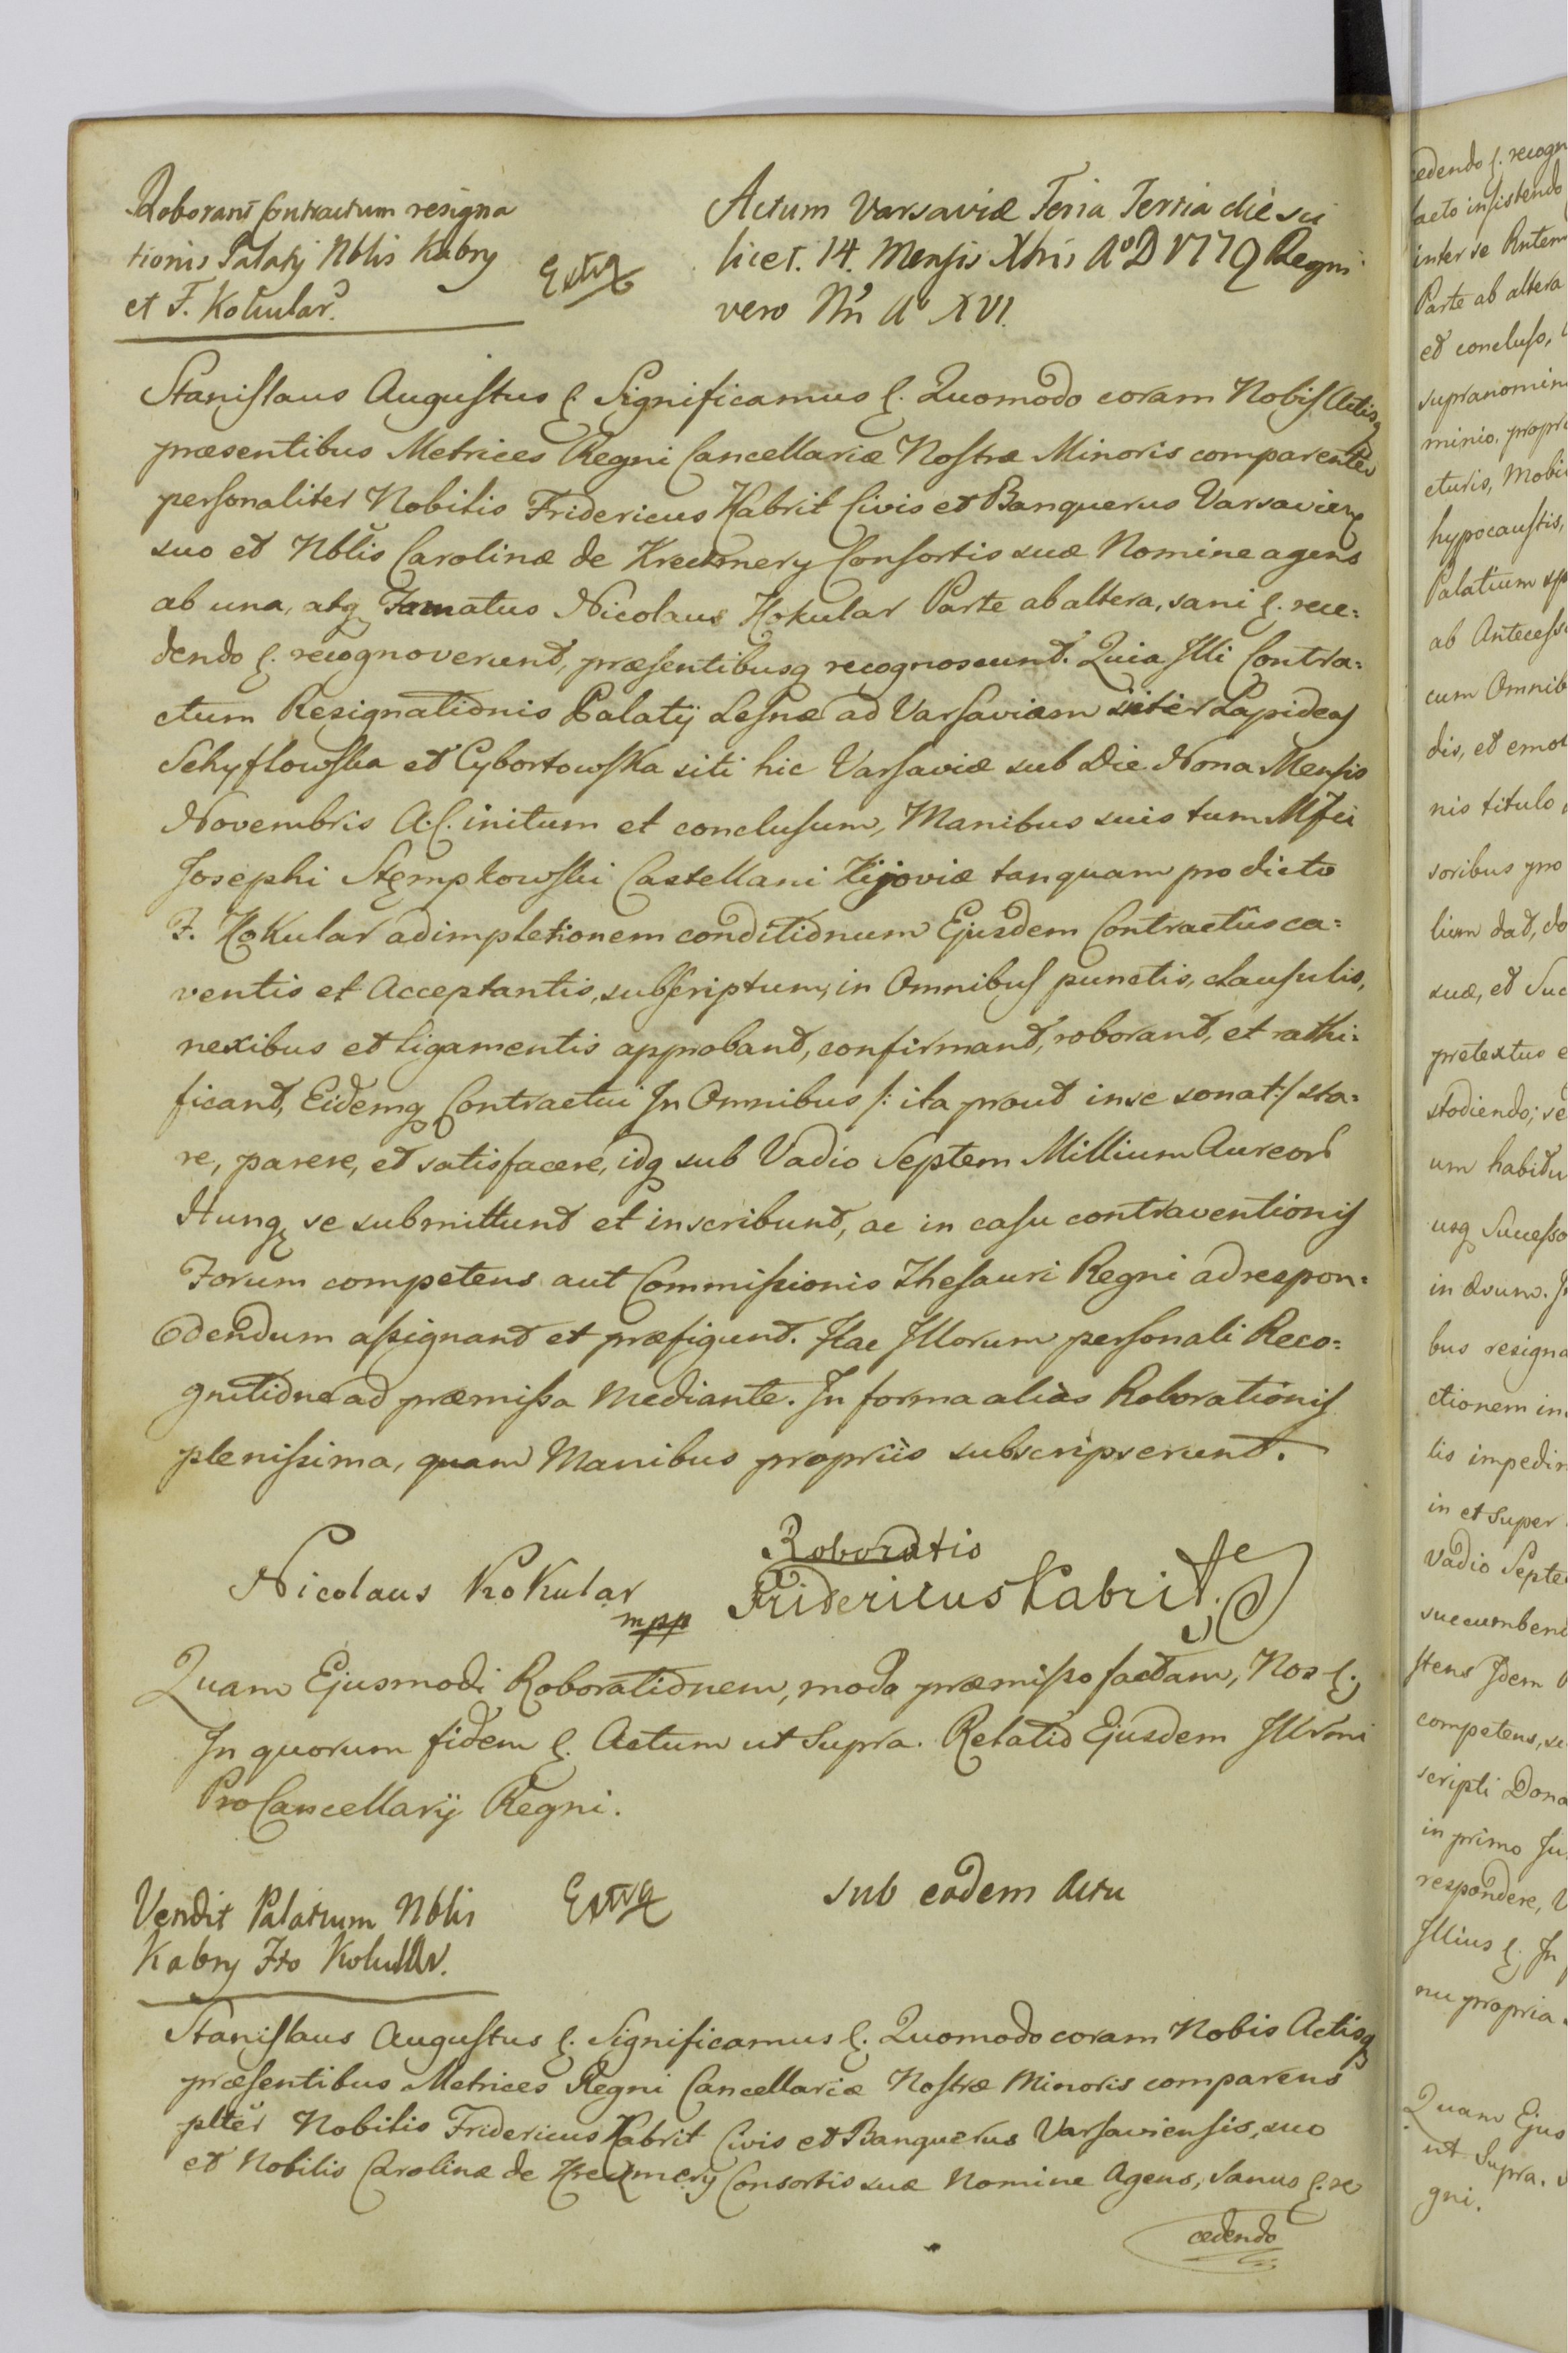 Roborant Contractum resigna
tionis Palatij Nblis Kabry
et F. Kokular.
Extra
Actum Varsaviæ Feria Tertia die sci
licet. 14. Mensis Xbris A°D 1779 Regni
vero Nri A° XVI.
Stanislaus Augustus &. Significamus &. Quomodo coram Nobis Actisq
præsentibus Metrices Regni Cancellariæ Nostræ Minoris comparentes
personaliter Nobilis Fridericus Kabrit Civis et Banquerus Varsavien
suo et Nblis Carolinæ de Consortis suæ Nomine agens
ab una, atq Famatus Nicolaus Kokular Parte ab altera, sani &. rece=
dendo &. recognoverunt, præsentibusq recognoscunt. Quia Illi Contra=
ctum Resignationis Palatij Lesnæ ad Varsaviam inter Lapideas
Schyflowska et Cybortowska siti hic Varsaviæ sub Die Nona Mensis
Novembris A.C. initum et conclusum, Manibus suis tum Mfci
Josephi Stempkowski Castellani Kijoviæ tanquam pro dicto
F. Kokular adimpletionem conditionum Ejusdem Contractûs ca=
ventis et Acceptantis, subscriptum, in Omnibus punctis, clausulis,
nexibus et ligamentis approbant, confirmant, roborant, et rathi=
ficant, Eidemq Contractui In Omnibus /: ita prout in se sonat :/ sta=
re, parere, et satisfacere, idq sub Vadio Septem Millium Aureor
Hung se submittunt et inscribunt, ac in casu contraventionis
Forum competens aut Commissionis Thesauri Regni ad respon=
dendum assignant et præfigunt. Hac Illorum personali Reco=
gnitione ad præmissa Mediante. In forma aliàs Roborationis
plenissima, quam Manibus propriis subscripserunt.
Roboratio
Nicolaus KoKular
mpp
Fridericus Kabrit
Quam Ejusmodi Roborationem, modo præmisso factam, Nos &.
In quorum fidem &. Actum ut Supra. Relatio Ejusdem Illrmi
ProCancellarij Regni.
Vendit Palatium Nblis
Kabry Fto Kokular.
Extra
sub eodem Actu
Stanislaus Augustus &. Significamus &. Quomodo coram Nobis Actisq
præsentibus Metrices Regni Cancellariæ Nostræ Minoris comparens
plter Nobilis Fridericus Kabrit Civis et Banquerus Varsaviensis, suo
et Nobilis Carolinæ de Consortis suæ Nomine Agens, Sanus &. re
cedendo
cedendo &. recogn
facto insistendo
inter se
Parte ab altera
et concluso,
supranomin
minio. propr
cturis, Mobi
hypocaustis,
Palatium
ab Antecess
cum Omnib
dis, et emol
nis titulo
soribus pro
lium dat, do
suæ, et Suc
pretextus
stodiendo; se
um habitu
usq Successo
in ævum.
bus resigna
ctionem in
lis impedi
in et super
Vadio Septe
succumben
stens Idem
competens, se
scripti Dona
in primo
respondere,
Illius &. In
nu propria
Quam Ejus
ut Supra.
gni.